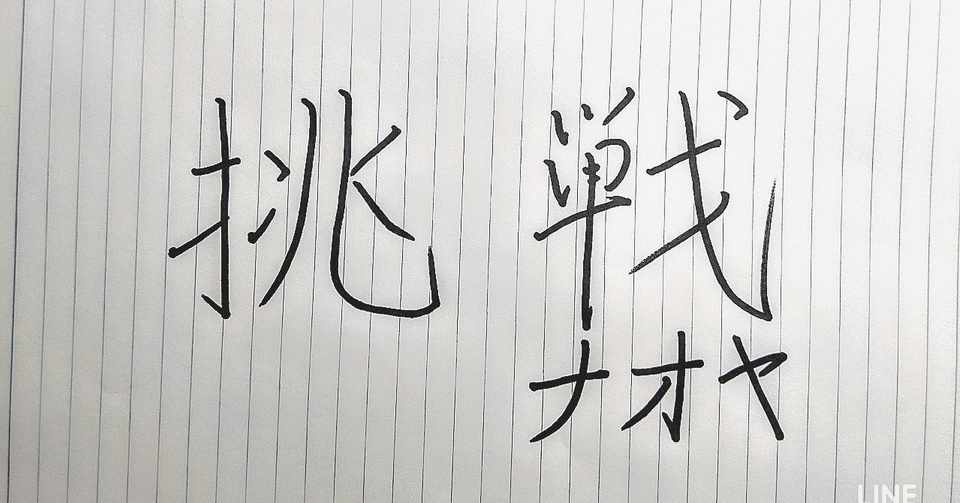 挑戦
ナオヤ
LINE